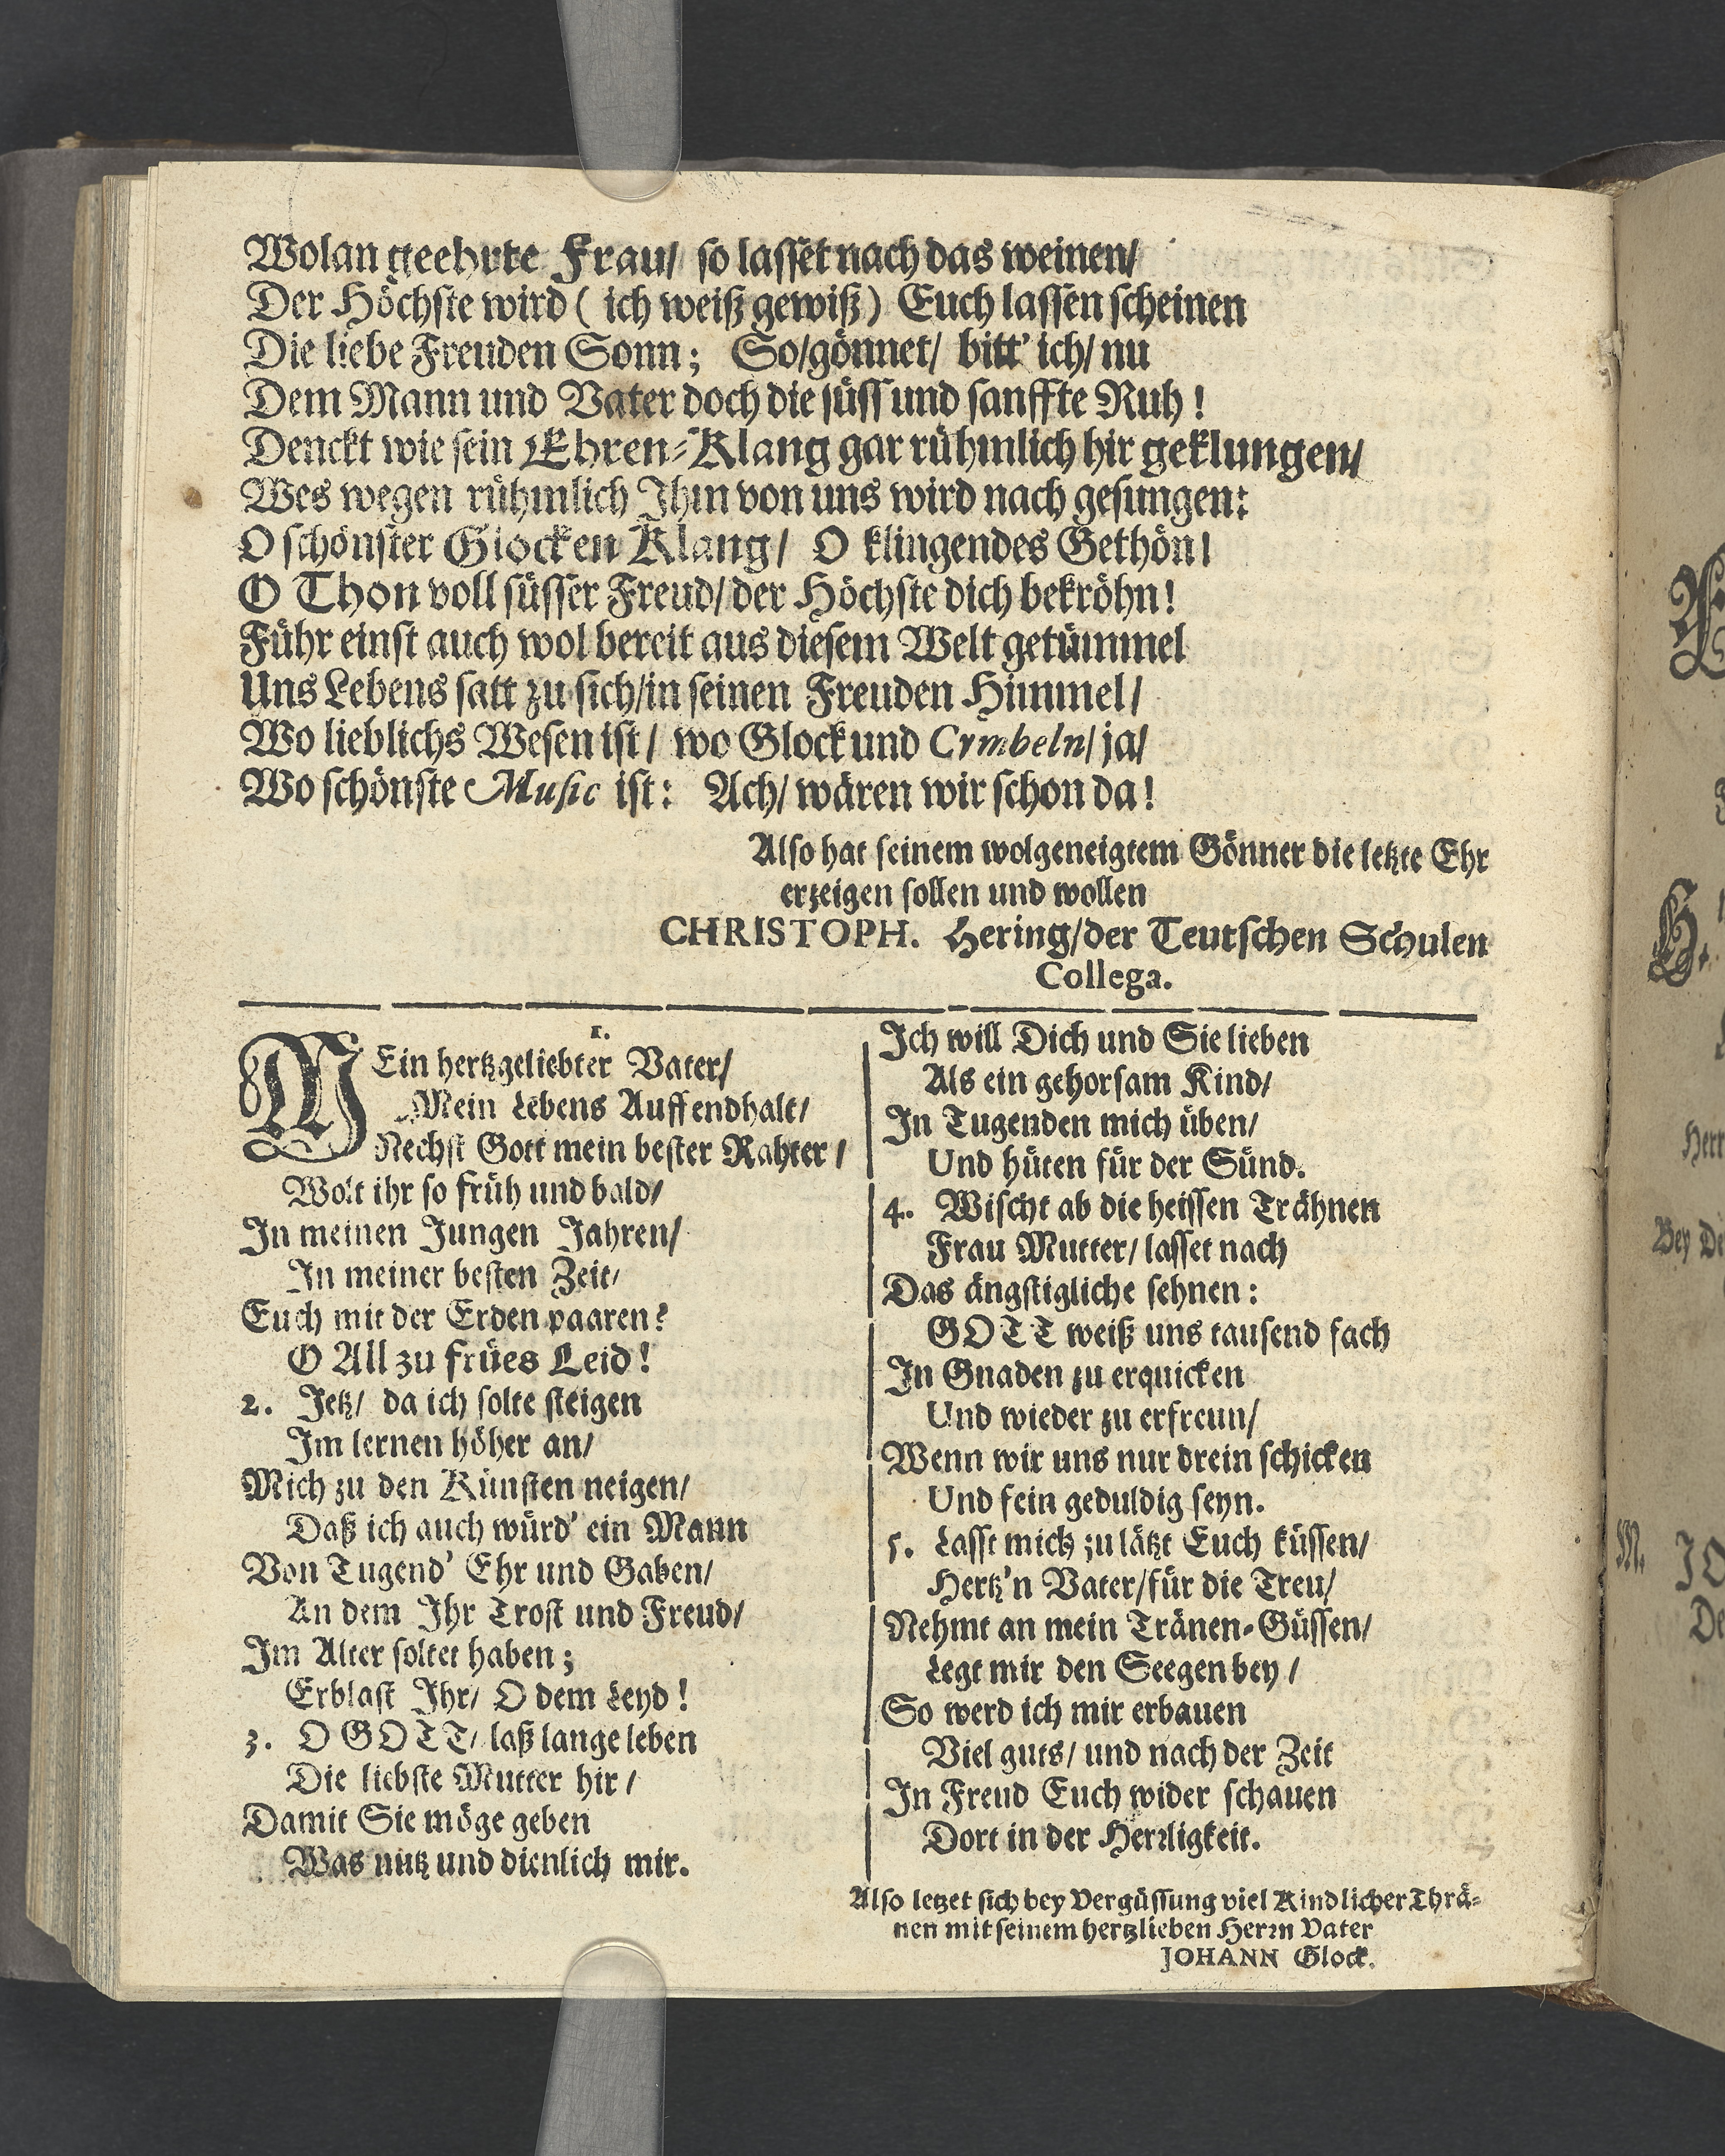 Wolan geehrte Frau/ so lasset nach das weinen/
Der Höchste wird ( ich weiß gewiß) Euch lassen scheinen
Die liebe Freuden Sonn; So/gönnet/ bitt' ich/ nu
Dem Mann und Vater doch die süss und sanffte Ruh !
Denckt wie sein Ehren-Klang gar rühmlich hir geklungen/
Wes wegen rühmlich Ihm von uns wird nach gesungen:
O schönster Glocken Klang/ O klingendes Gethön!
O Thon voll süsser Freud/ der Höchste dich bekröhn!
Führ einst auch wol bereit aus diesem Welt getümmel
Uns Lebens satt zu sich/in seinen Freuden Himmel/
Wo lieblichs Wesen ist/ wo Glock und Cymbeln/ ja/
Wo schönste Music ist: Ach/ wären wir schon da!
Also hat seinem wolgeneigtem Gönner die letzte Ehr
erzeigen sollen und wollen
CHRISTOPH. Hering/der Teutschen Schulen
Collega.
1.
MEin hertzgeliebter Vater/
Mein Lebens Auffendhalt/
Nechst Gott mein bester Rahter/
Wolt ihr so früh und bald/
In meinen Jungen Jahren/
In meiner besten Zeit/
Euch mit der Erden paaren?
O All zu frües Leid!
2. Jetz/ da ich solte steigen
Im lernen höher an/
Mich zu den Künsten neigen/
Daß ich auch würd' ein Mann
Von Tugend' Ehr und Gaben/
An dem Ihr Trost und Freud/
Im Alter soltet haben;
Erblast Ihr/ O dem Leyd!
3. O GOTT/ laß lange leben
Die liebste Mutter hir/
Damit Sie möge geben
Was nutz und dienlich mir.
Ich will Dich und Sie lieben
Als ein gehorsam Kind/
In Tugenden mich üben/
Und hüten für der Sünd.
4. Wischt ab die heissen Trähnen
Frau Mutter/ lasset nach
Das ängstigliche sehnen:
GOTT weiß uns tausend fach
In Gnaden zu erquicken
Und wieder zu erfreun/
Wenn wir uns nur drein schicken
Und fein geduldig seyn.
5. Lasst mich zu lätzt Euch küssen/
Hertz'n Vater/für die Treu/
Nehmt an mein Tränen-Güssen/
Legt mir den Seegen bey/
So werd ich mir erbauen
Viel guts/ und nach der Zeit
In Freud Euch wider schauen
Dort in der Herrligkeit.
Also letzet sich bey Vergüssung viel Kindlicher Thrä-
nen mit seinem hertzlieben Herrn Vater
JOHANN Glock.